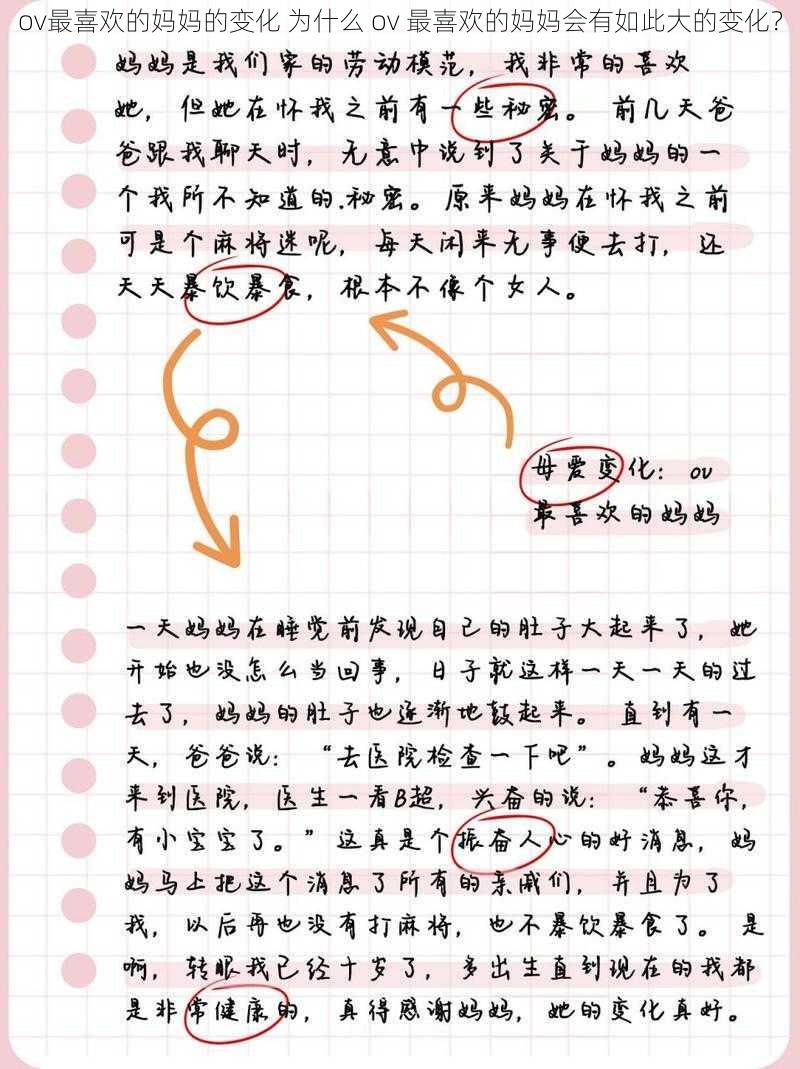 ov最喜欢的妈妈的变化 为什么 ov 最喜欢的妈妈会有如此大的变化?
妈妈是我们家的劳动模范，我非常的喜欢
她，但她在怀我之前有一些秘密。 前几天爸
爸跟我聊天时，无意中说到了关于妈妈的一
个我所不知道的.秘密。原来妈妈在怀我之前
可是个麻将迷呢，每天闲来无事便去打，还
天天暴饮暴食，根本不像个女人。
母爱变化：ov
最喜欢的妈妈
一天妈妈在睡觉前发现自己的肚子大起来了，她
开始也没怎么当回事，日子就这样一天一天的过
去了，妈妈的肚子也逐渐地鼓起来。 直到有一
天，爸爸说：“去医院检查一下吧”。妈妈这才
来到医院，医生一看B超，兴奋的说：“恭喜你，
有小宝宝了。”这真是个振奋人心的好消息，妈
妈马上把这个消息了所有的亲戚们，并且为了
我，以后再也没有打麻将，也不暴饮暴食了。 是
啊，转眼我已经十岁了，多出生直到现在的我都
是非常健康的，真得感谢妈妈，她的变化真好。